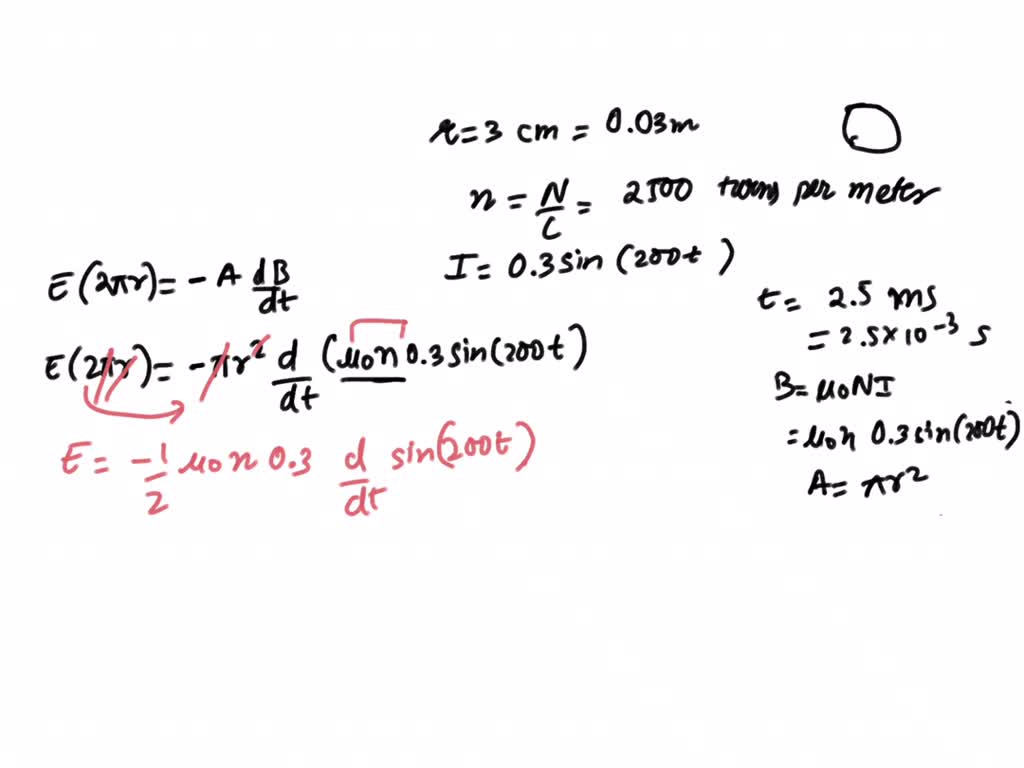 r = 3 cm = 0.03m
n = N/L = 2500 turns per meter
I = 0.3 sin (200t)
E(2πr) = - A dB/dt
E(2πr) = - πr² d/dt (μ₀n 0.3 sin(200t)
E = -1/2 μ₀ n 0.3 d/dt sin(200t)
t = 2.5 ms
= 2.5 × 10⁻³ s
B = μ₀NI
= μ₀n 0.3 sin(200t)
A = πr²